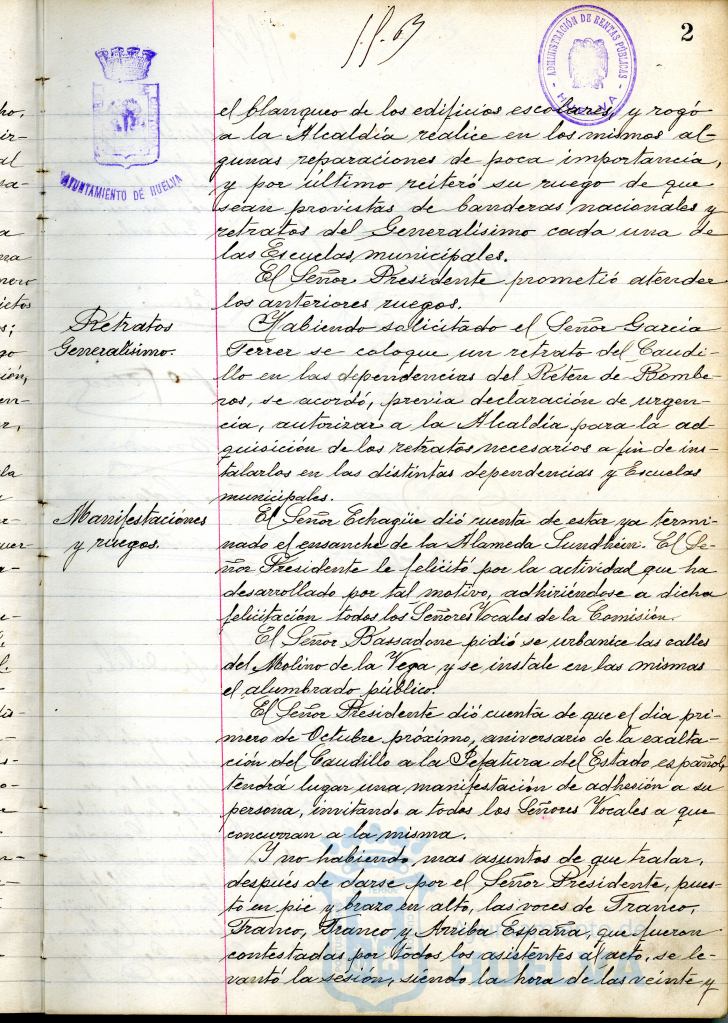 f. f. 63
2
ADMINISTRACIÓN DE RENTAS PÚBLICAS
HUELVA
AYUNTAMIENTO DE HUELVA
el blanqueo de los edificios escolares, y rogó
a la Alcaldía realice en los mismos al-
gunas reparaciones de poca importancia,
y por último reiteró su ruego de que
sean provistas de banderas nacionales y
retratos del Generalísimo cada una de
las Escuelas municipales.
El Señor Presidente prometió atender
los anteriores ruegos.
Retratos
Generalísimo.
Habiendo solicitado el Señor García
Ferrer se coloque un retrato del Caudi-
llo en las dependencias del Retén de Bombe-
ros, se acordó, previa declaración de urgen-
cia, autorizar a la Alcaldía para la ad-
quisición de los retratos necesarios a fin de ins-
talarlos en las distintas dependencias y Escuelas
municipales.
Manifestaciones
y ruegos.
El Señor Echagüe dió cuenta de estar ya termi-
nado el ensanche de la Alameda Sundhein. El Se-
ñor Presidente le felicitó por la actividad que ha
desarrollado por tal motivo, adhiriéndose a dicha
felicitación todos los Señores Vocales de la Comisión.
El Señor Bassadone pidió se urbanice las calles
del Molino de la Vega y se instale en las mismas
el alumbrado público.
El Señor Presidente dió cuenta de que el día pri-
mero de Octubre próximo, aniversario de la exalta-
ción del Caudillo a la Jefatura del Estado español,
tendrá lugar una manifestación de adhesión a su
persona, invitando a todos los Señores Vocales a que
concurran a la misma.
Y no habiendo mas asuntos de que tratar,
después de darse por el Señor Presidente, pues-
to en pié y brazo en alto, las voces de Franco,
Franco, Franco y Arriba España, que fueron
contestadas por todos los asistentes al acto, se le-
vantó la sesión, siendo la hora de las veinte y
HUELVA